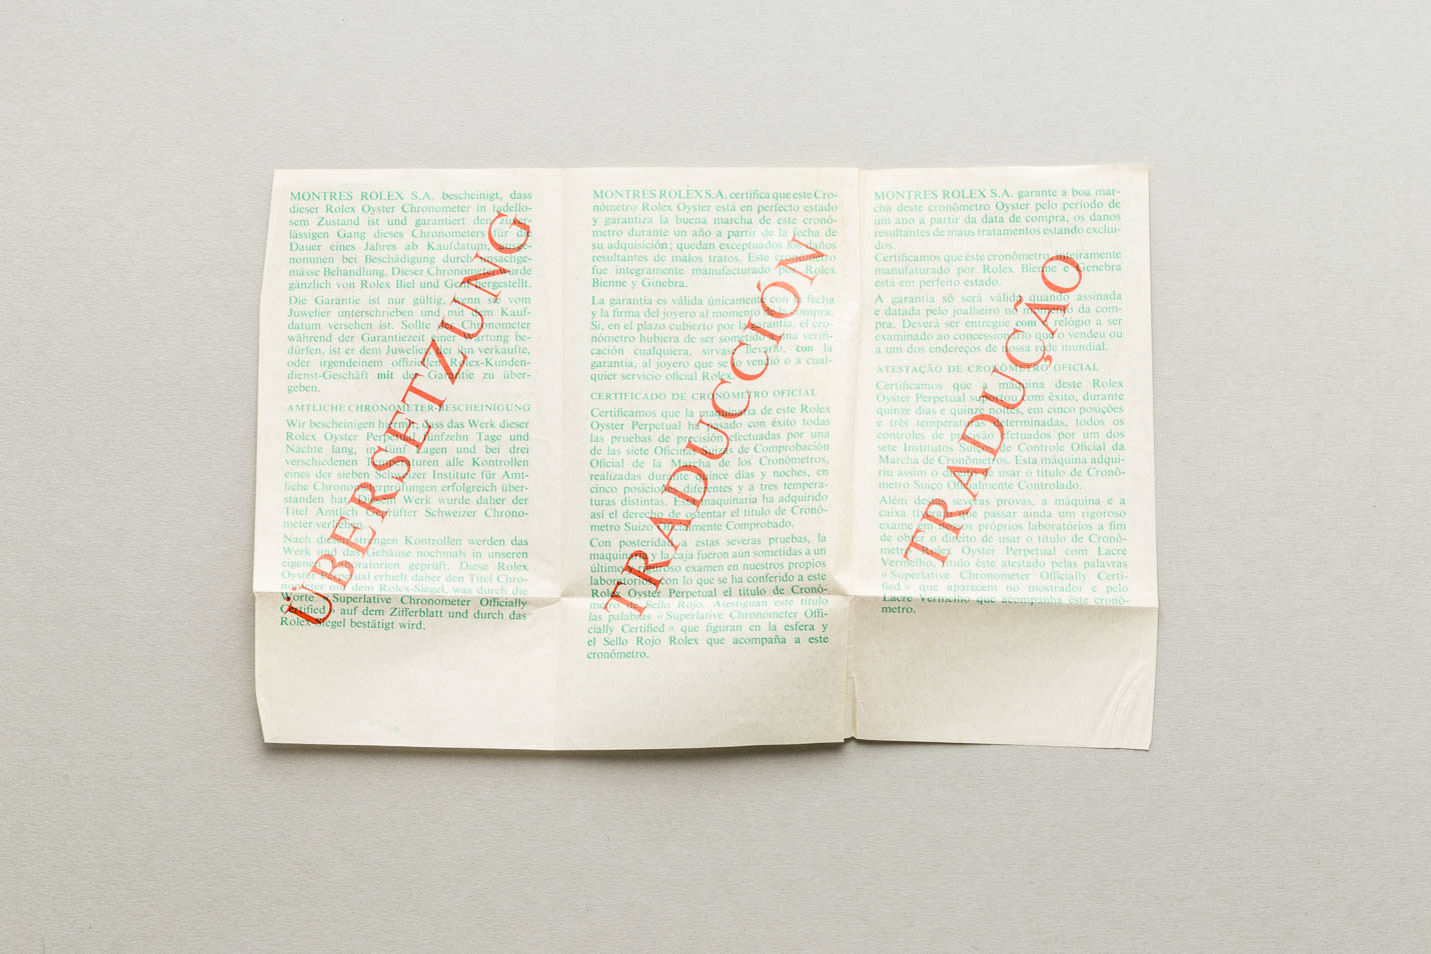 MONTRES ROLEX S.A. bescheinigt, dass
dieser Rolex Oyster Chronometer in tadello-
sem Zustand ist und garantiert den zuver-
lässigen Gang dieses Chronometers für die
Dauer eines Jahres ab Kaufdatum, ausge-
nommen bei Beschädigung durch unsachge-
mässe Behandlung. Dieser Chronometer wurde
gänzlich von Rolex Biel und Genf hergestellt.
Die Garantie ist nur gültig, wenn sie vom
Juwelier unterschrieben und mit dem Kauf-
datum versehen ist. Sollte der Chronometer
während der Garantiezeit einer Wartung be-
dürfen, ist er dem Juwelier, der ihn verkaufte,
oder irgendeinem offiziellen Rolex-Kunden-
dienst-Geschäft mit der Garantie zu über-
geben.
AMTLICHE CHRONOMETER-BESCHEINIGUNG
Wir bescheinigen hiermit, dass das Werk dieser
Rolex Oyster Perpetual fünfzehn Tage und
Nächte lang, in fünf Lagen und bei drei
verschiedenen Temperaturen alle Kontrollen
eines der sieben Schweizer Institute für Amt-
liche Chronometerprüfungen erfolgreich über-
standen hat. Diesem Werk wurde daher der
Titel Amtlich Geprüfter Schweizer Chrono-
meter verliehen.
Nach diesen strengen Kontrollen werden das
Werk und das Gehäuse nochmals in unseren
eigenen Laboratorien geprüft. Diese Rolex
Oyster Perpetual erhielt daher den Titel Chro-
nometer mit dem Rolex-Siegel, was durch die
Worte « Superlative Chronometer Officially
Certified » auf dem Zifferblatt und durch das
Rolex-Siegel bestätigt wird.
ÜBERSETZUNG
MONTRES ROLEX S.A. certifica que este Cro-
nómetro Rolex Oyster está en perfecto estado
y garantiza la buena marcha de este cronó-
metro durante un año a partir de la fecha de
su adquisición; quedan exceptuados los daños
resultantes de malos tratos. Este cronómetro
fue integramente manufacturado por Rolex
Bienne y Ginebra.
La garantía es válida únicamente con la fecha
y la firma del joyero al momento de la compra.
Si, en el plazo cubierto por la garantía, el cro-
nómetro hubiera de ser sometido a una verifi-
cación cualquiera, sirvase llevarlo, con la
garantía, al joyero que se lo vendió o a cual-
quier servicio oficial Rolex.
CERTIFICADO DE CRONÓMETRO OFICIAL
Certificamos que la maquinaria de este Rolex
Oyster Perpetual ha pasado con éxito todas
las pruebas de precisión efectuadas por una
de las siete Oficinas Suizas de Comprobación
Oficial de la Marcha de los Cronómetros,
realizadas durante quince días y noches, en
cinco posiciones diferentes y a tres tempera-
turas distintas. Esta maquinaria ha adquirido
así el derecho de ostentar el título de Cronó-
metro Suizo Oficialmente Comprobado.
Con posteridad a estas severas pruebas, la
maquinaria y la caja fueron aún sometidas a un
último y riguroso examen en nuestros propios
laboratorios, con lo que se ha conferido a este
Rolex Oyster Perpetual el título de Cronó-
metro de Sello Rojo. Atestiguan este título
las palabras « Superlative Chronometer Offi-
cially Certified » que figuran en la esfera y
el Sello Rojo Rolex que acompaña a este
cronómetro.
TRADUCCIÓN
MONTRES ROLEX S.A. garante a boa mar-
cha deste cronômetro Oyster pelo período de
um ano a partir da data de compra, os danos
resultantes de maus tratamentos estando exclui-
dos.
Certificamos que êste cronômetro inteiramente
manufaturado por Rolex Bienne e Genebra
está em perfeito estado.
A garantia só será válida quando assinada
e datada pelo joalheiro no momento da com-
pra. Deverá ser entregue com o relógio a ser
examinado ao concessionário que o vendeu ou
a um dos endereços de nossa rede mundial.
ATESTAÇÃO DE CRONÔMETRO OFICIAL
Certificamos que a máquina deste Rolex
Oyster Perpetual suportou com êxito, durante
quinze dias e quinze noites, em cinco posições
e três temperaturas determinadas, todos os
controles de precisão efetuados por um dos
sete Institutos Suiços de Controle Oficial da
Marcha de Cronômetros. Esta máquina adqui-
riu assim o direito de usar o título de Cronô-
metro Suiço Oficialmente Controlado.
Além destas severas provas, a máquina e a
caixa tiveram que passar ainda um rigoroso
exame em nossos próprios laboratórios a fim
de obter o direito de usar o título de Cronô-
metro Rolex Oyster Perpetual com Lacre
Vermelho, título êste atestado pelas palavras
« Superlative Chronometer Officially Certi-
fied » que aparecem no mostrador e pelo
Lacre Vermelho que acompanha êste cronô-
metro.
TRADUÇÃO